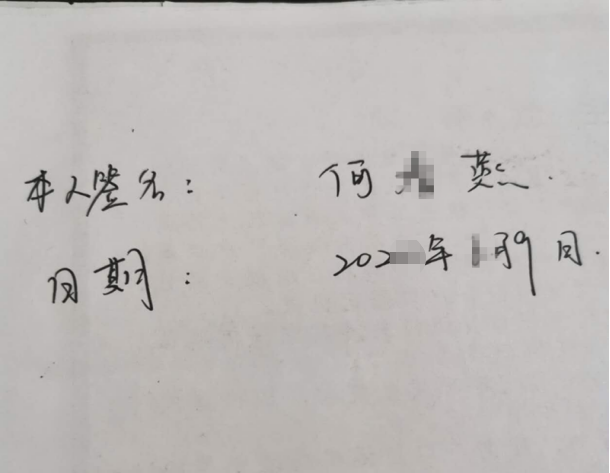 本人签名： 何 燕.
日期： 202 年 月9日.